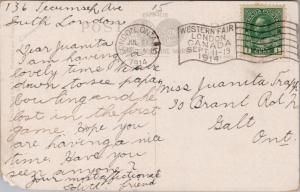 136 Tecumseh Ave
South London
15
Dear Juanita
I am having a
lovely time. We
down to see papa
bowling and he
lost in the first
game. Hope you
are having a nice
time. Have you
seen anyone?
Your most affectionate
friend
LONDON, ONTARIO
1914
WESTERN FAIR
LONDON
CANADA
SEPT. 11-19
1914
Miss Juanita
30 Grant Rd. N
Galt
Ont.